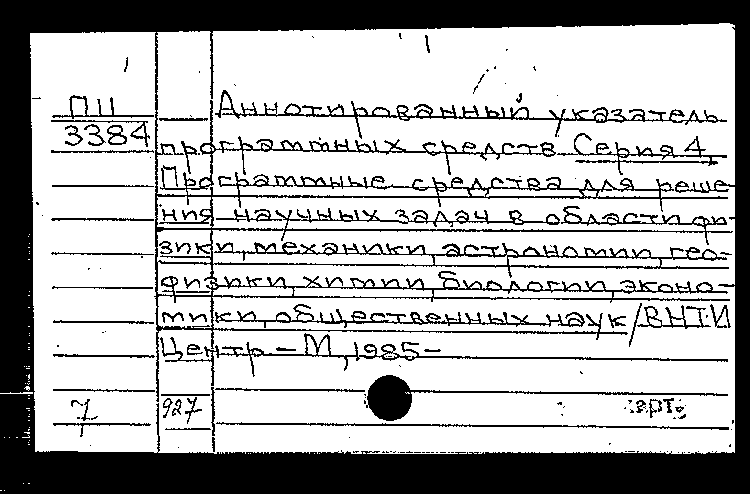 П11
3384
Аннотированный указатель
программных средств Серия 4.
Программные средства для реше-
ния научных задач в области фи-
зики, механики, астрономии, гео-
физики, химии, биологии, эконо-
мики, общественных наук/ВНТИ
Центр – М, 1985 –
7
927